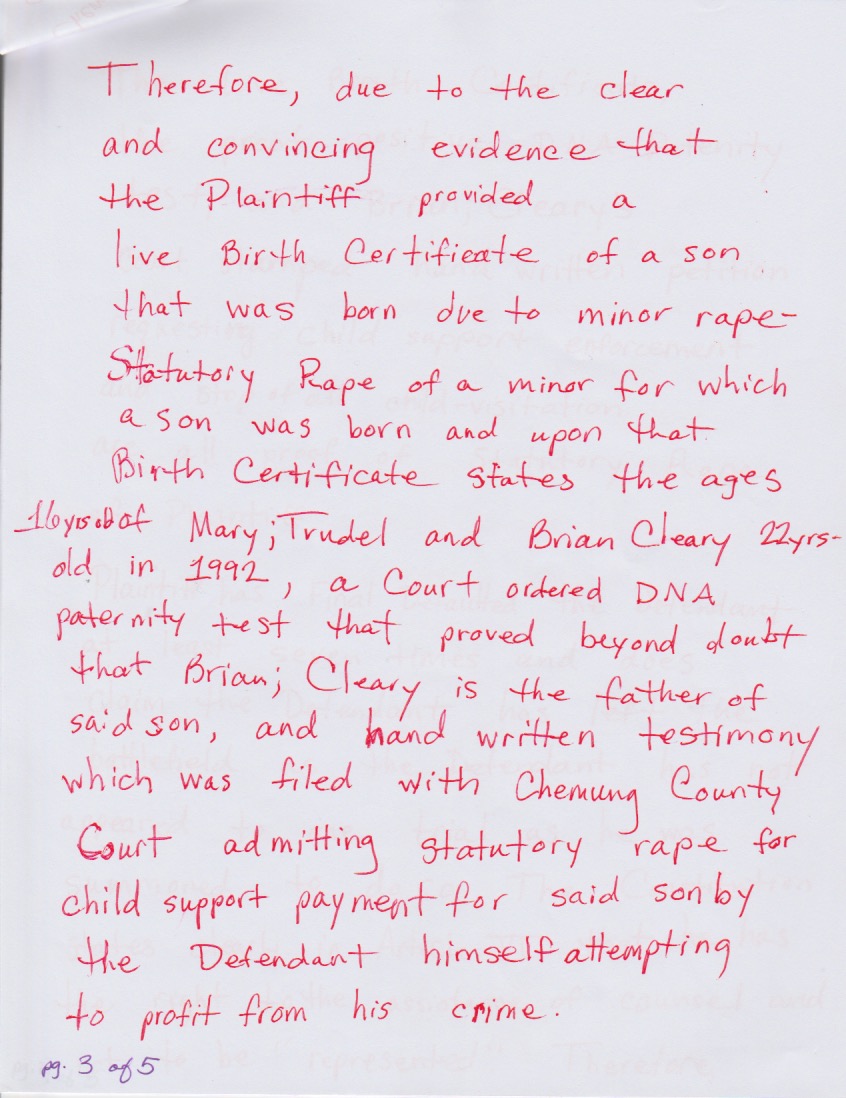 Therefore, due to the clear
and convincing evidence that
the Plaintiff provided a
live Birth Certificate of a son
that was born due to minor rape-
Statutory Rape of a minor for which
a son was born and upon that
Birth Certificate states the ages
16 yrs old of Mary; Trudel and Brian Cleary 22yrs-
old in 1992, a Court ordered DNA
paternity test that proved beyond doubt
that Brian; Cleary is the father of
said son, and hand written testimony
which was filed with Chemung County
Court admitting statutory rape for
child support payment for said son by
the Defendant himself attempting
to profit from his crime.
pg. 3 of 5